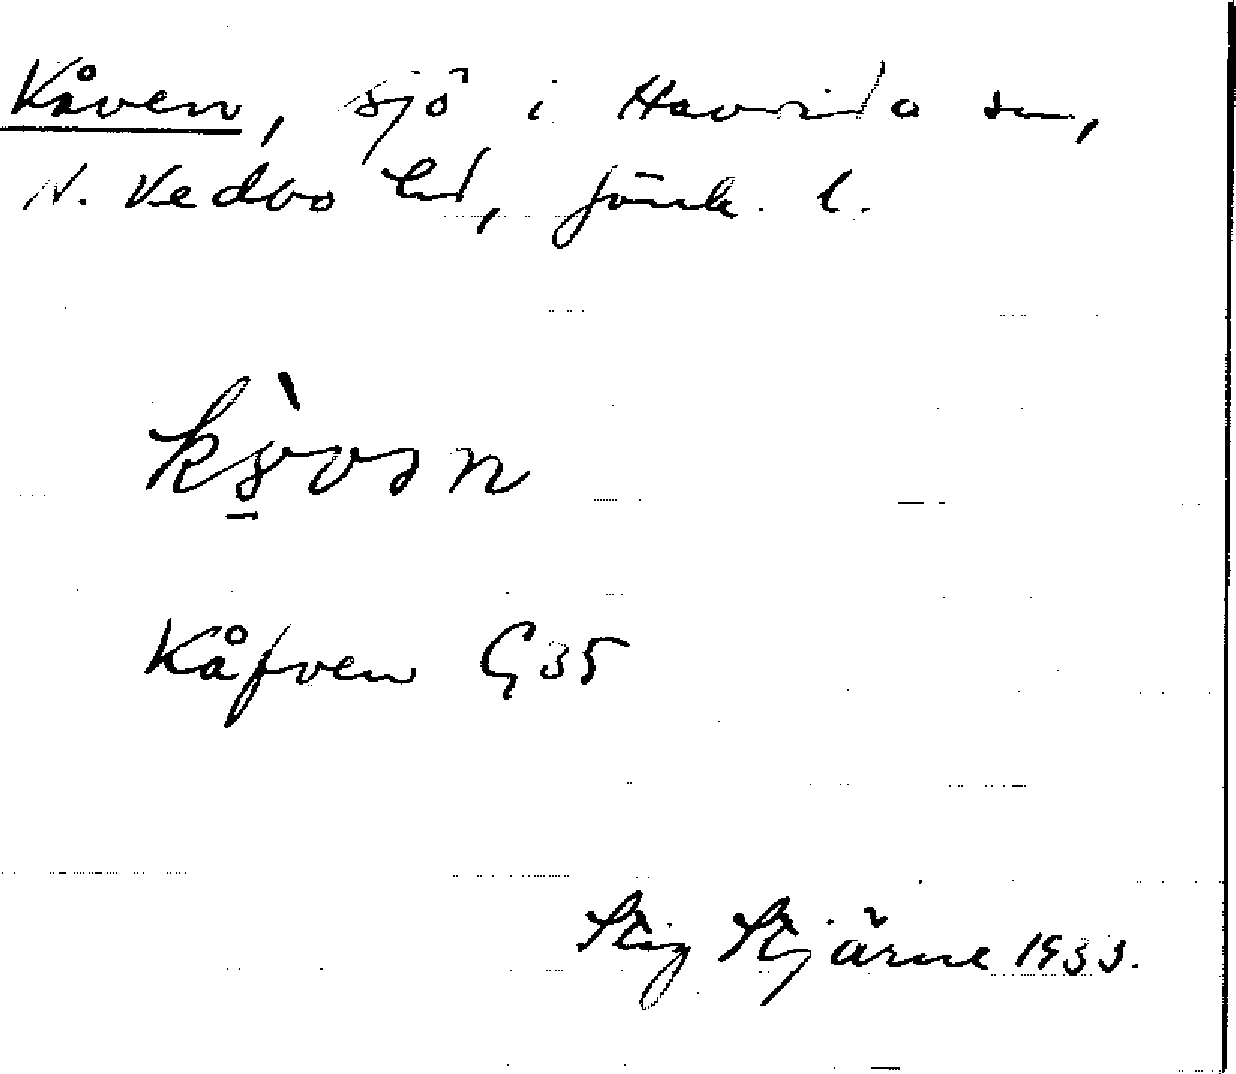 Kåven, sjö i Haurida sn,
N. Vedbo hd, Jönk. l.
kɤ̠̀vən
Kåfven G 35
Stig Stjärne 1933.